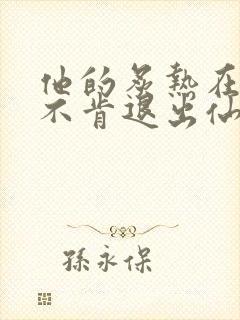 他的炙热在
不肯退出仙
孫永保